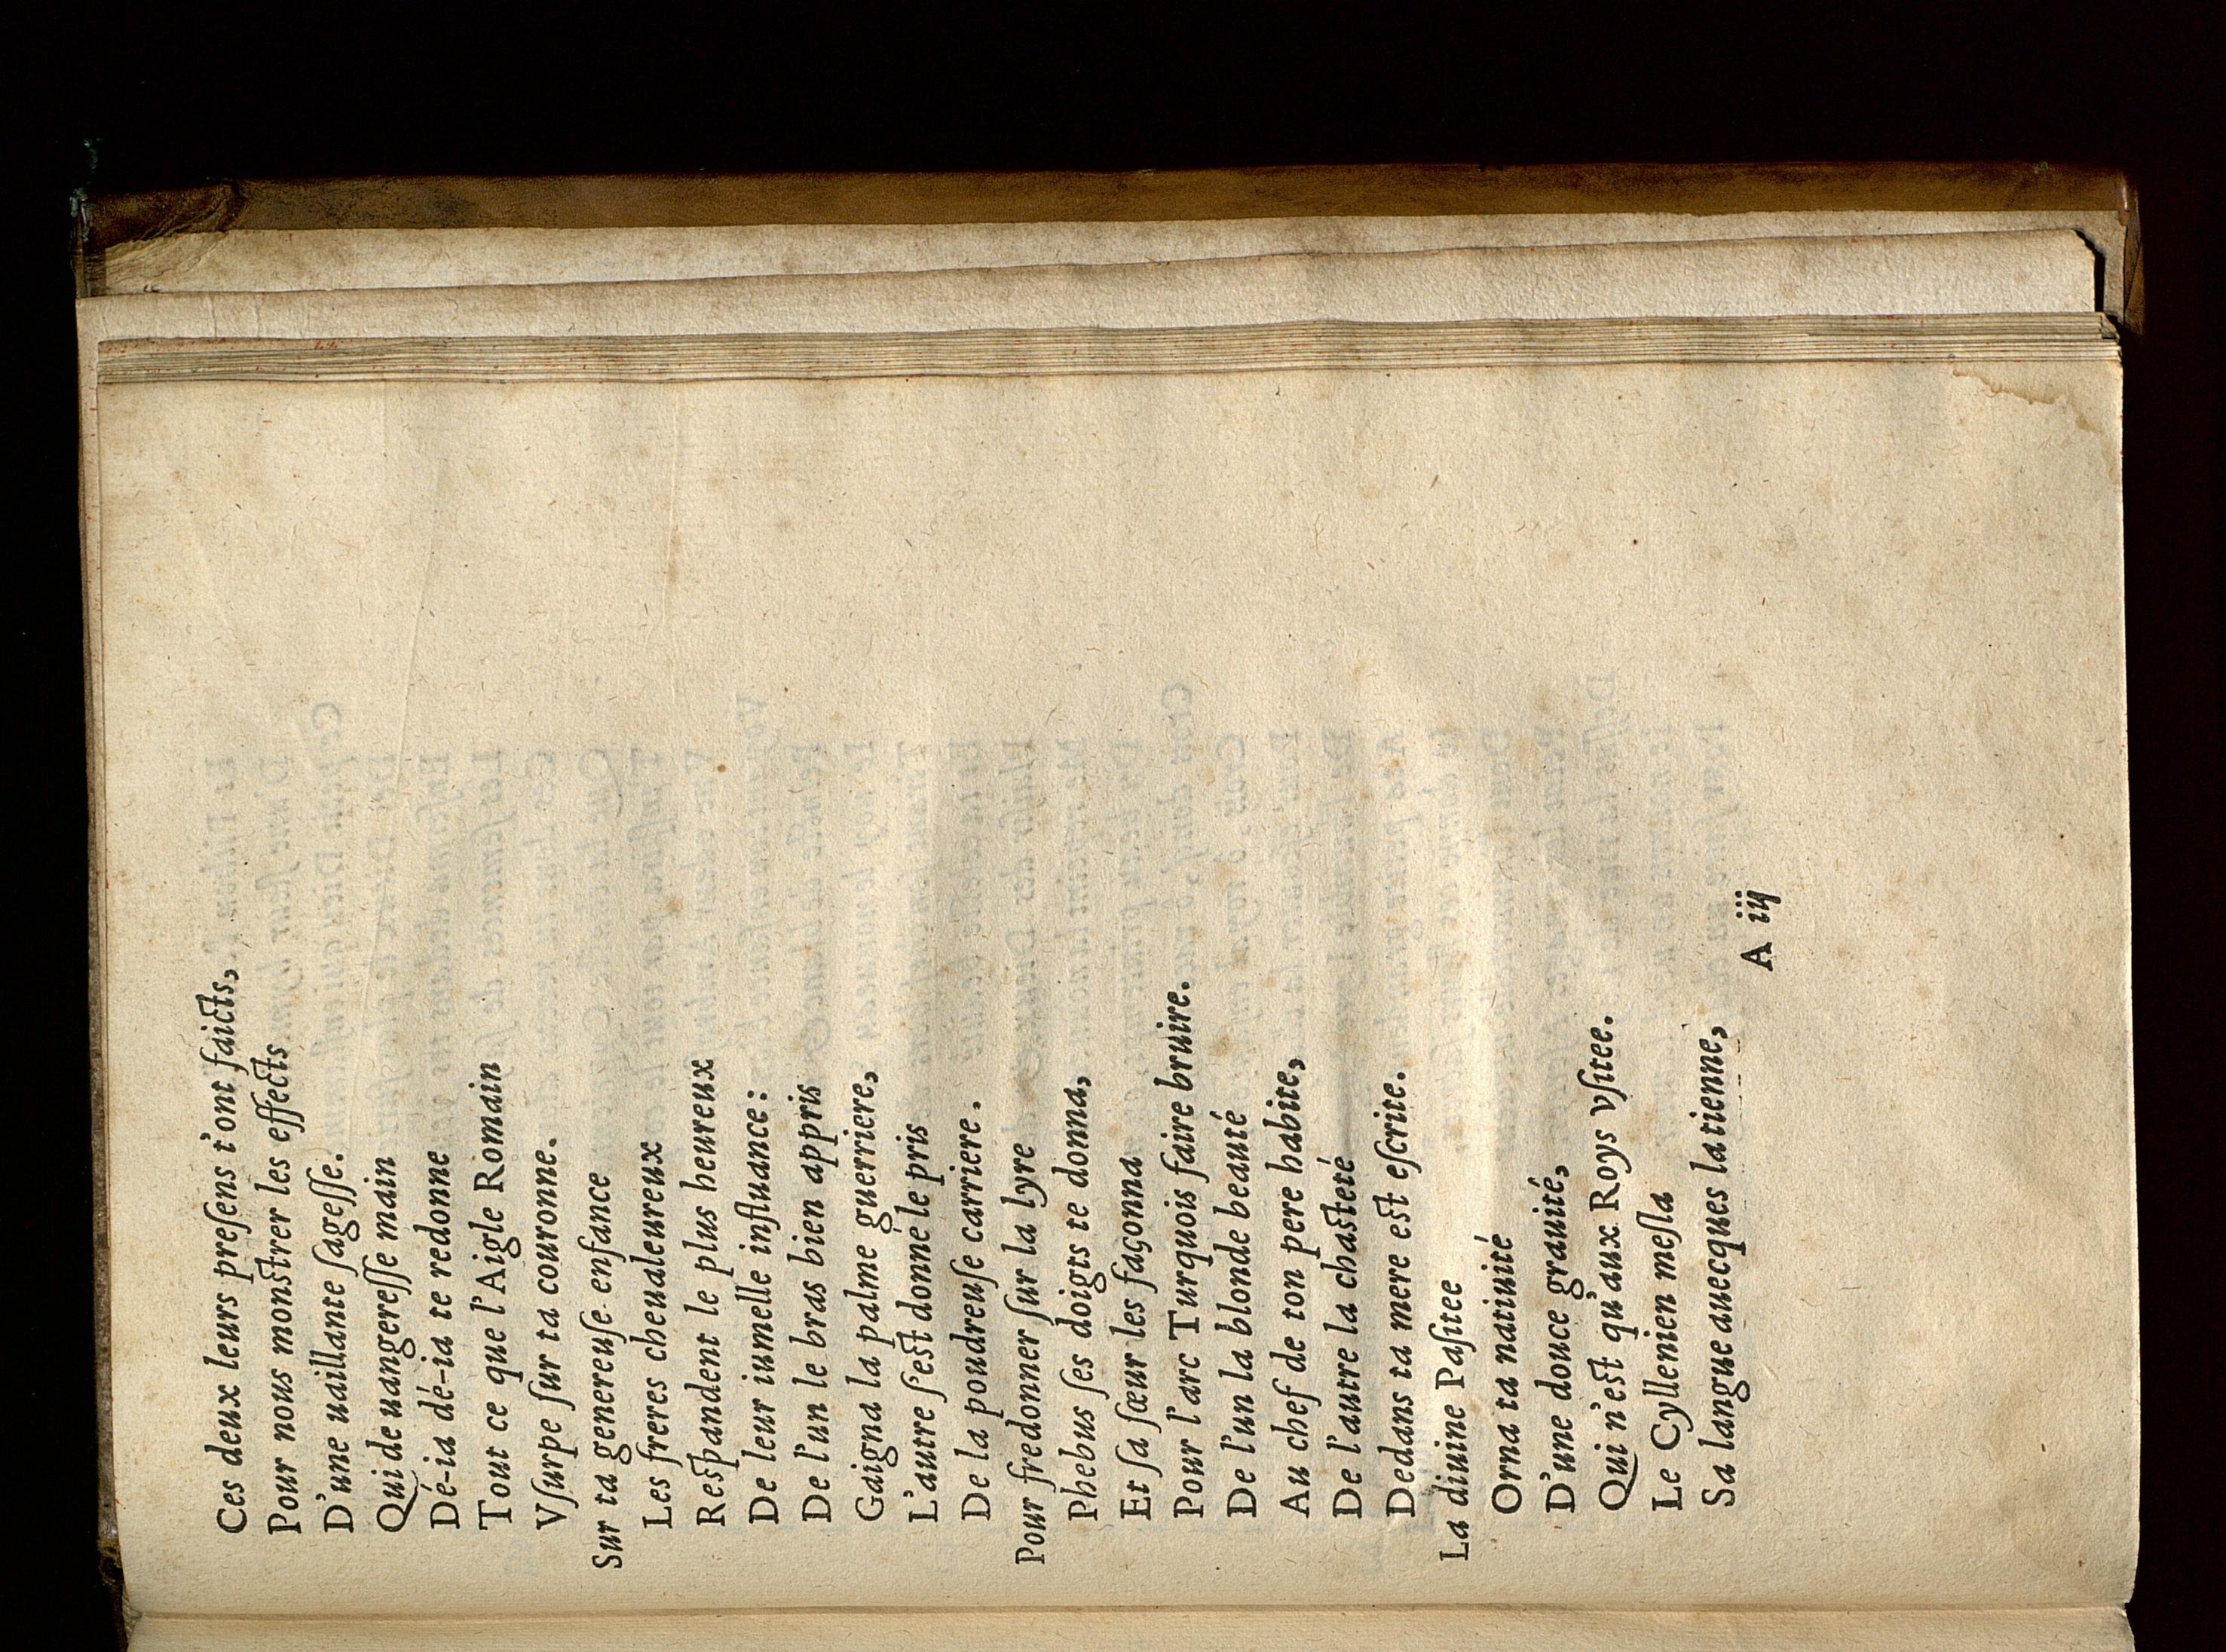 Ces deux leurs preſens t'ont faicts,
Pour nous monſtrer les effects
D'une uaillante ſageſſe.
Qui de uangereſſe main
Dé-ia dé-ia te redonne
Tout ce que l'Aigle Romain
Vſurpe ſur ta couronne.
Sur ta genereuſe enfance
Les freres cheualeureux
Reſpandent le plus heureux
De leur iumelle influance:
De l'un le bras bien appris
Gaigna la palme guerriere,
L'autre ſ'eſt donné le pris
De la poudreuſe carriere.
Pour fredonner ſur la lyre
Phebus ſes doigts te donna,
Et ſa ſœur les façonna
Pour l'arc Turquois faire bruire.
De l'un la blonde beauté
Au chef de ton pere habite,
De l'autre la chaſteté
Dedans ta mere eſt eſcrite.
La diuine Paſitee
Orna ta natiuité
D'une douce grauité,
Qui n'eſt qu'aux Roys vſitee.
Le Cyllenien meſla
Sa langue auecques la tienne,
A iij